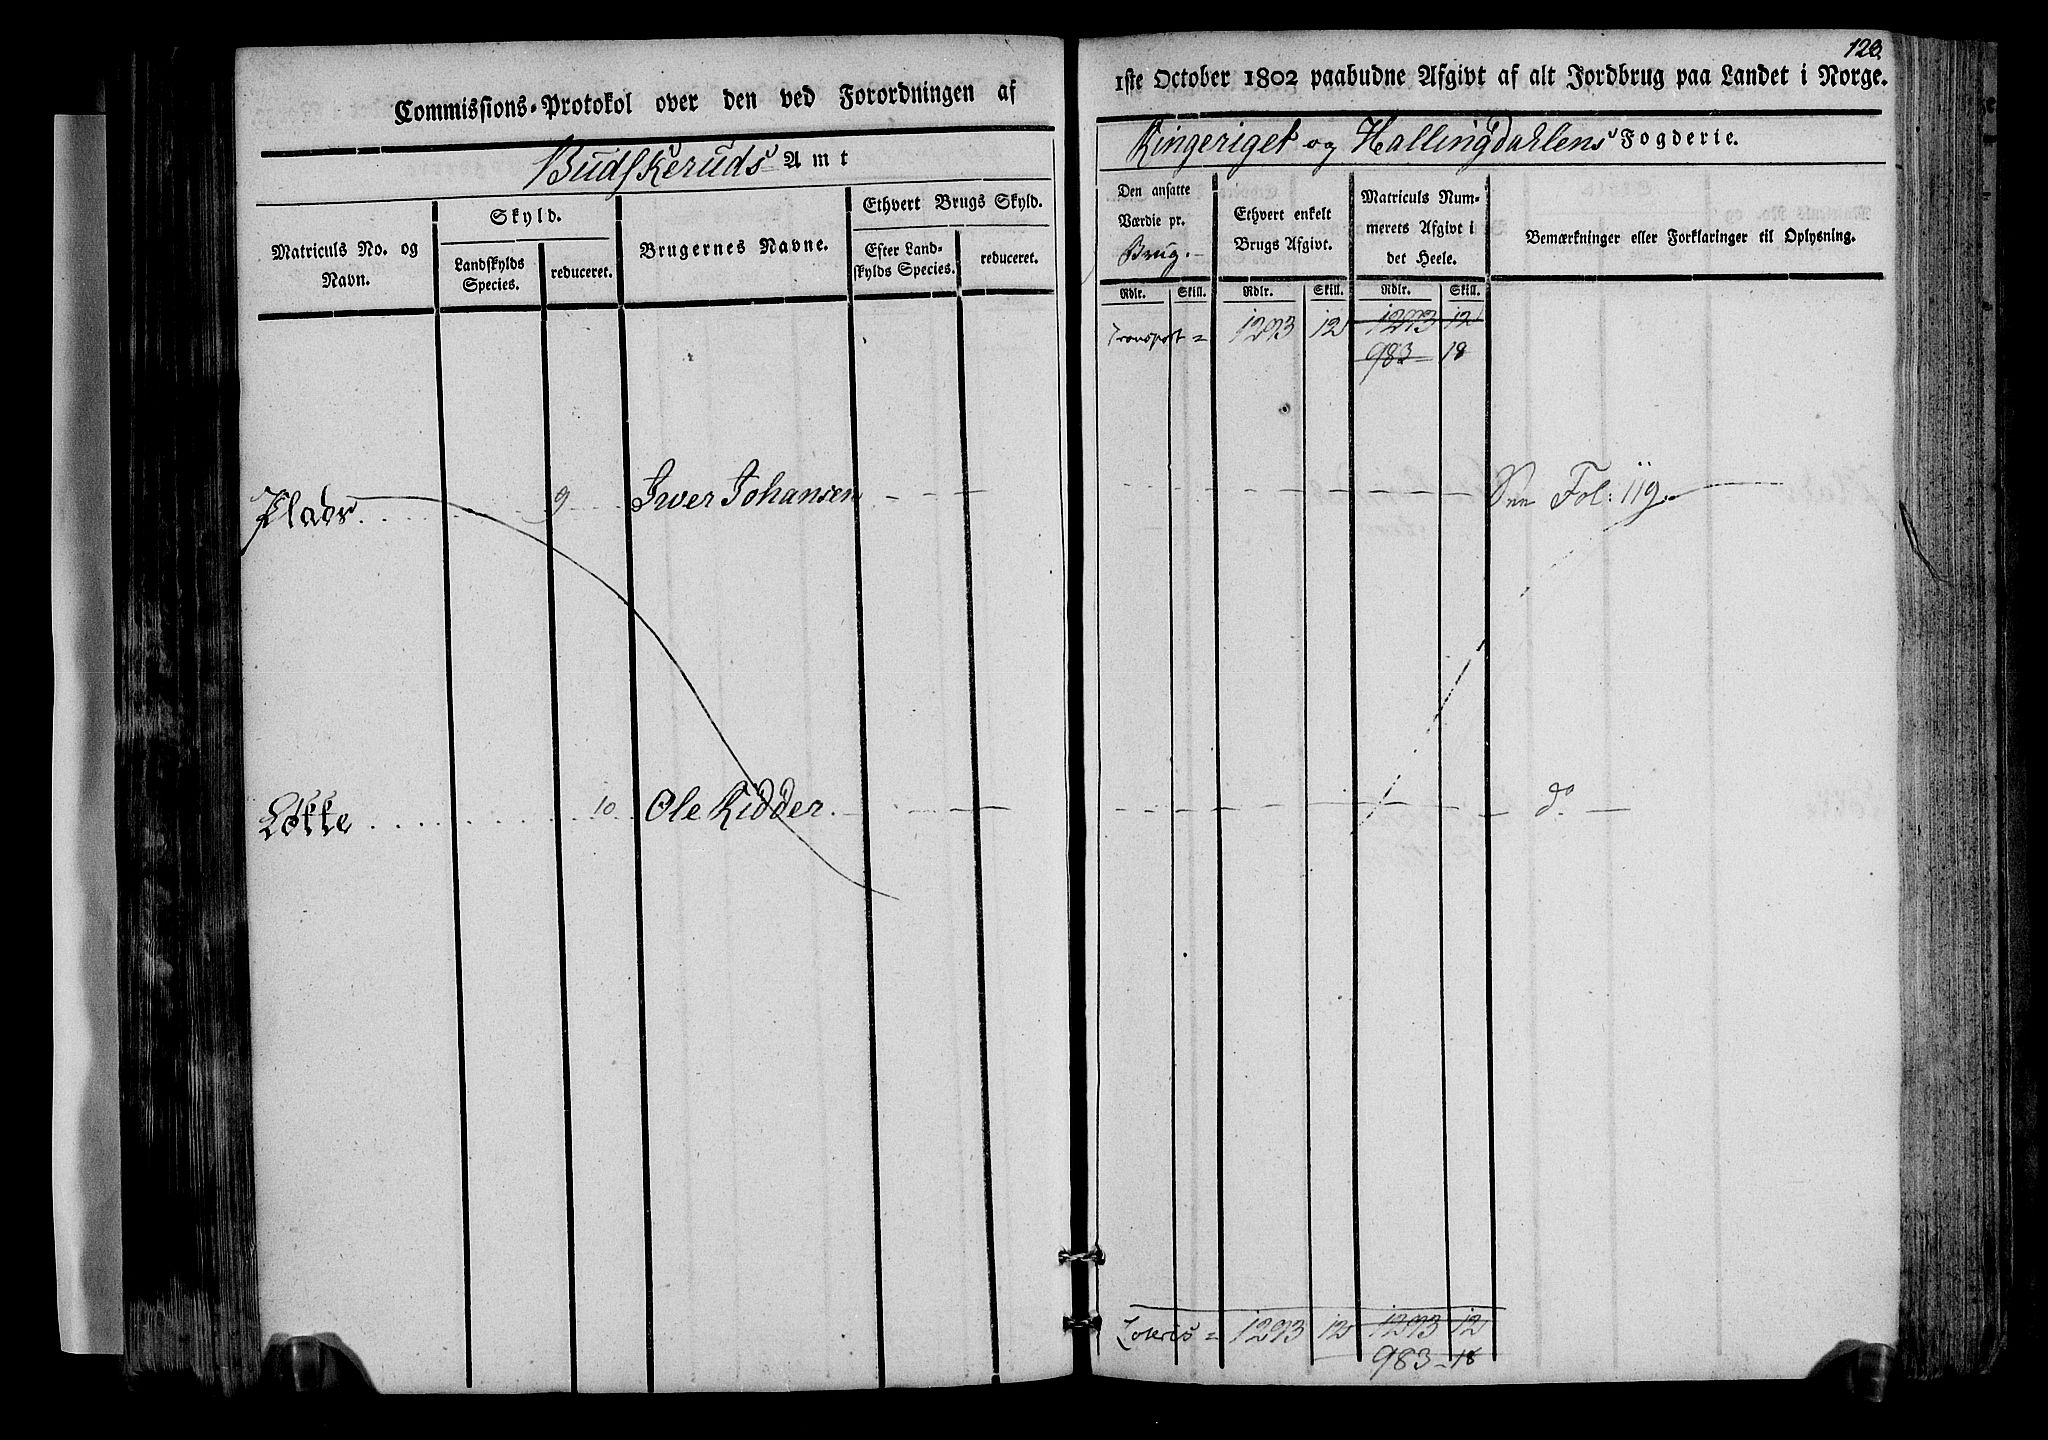 Commissions-Protokol over den ved Forordningen af
Budskeruds Amt
Matriculs No. og Navn.
Skyld.
Landskylds Species.
reduceret.
Brugernes Navne.
Ethvert Brugs Skyld.
Efter Landskylds Species.
reduceret.
Plads 9 Iver Johansen
Løkke 10 Ole Kidder.
123
1ste October 1802 paabudne Afgivt af alt Jordbrug paa Landet i Norge.
Ringeriget og Hallingdahlens Fogderie.
Den ansatte Værdie pr. Brug.
Ethvert enkelt Brugs Afgivt.
Matriculs Nummerets Afgivt i det Heele.
Bemærkninger eller Forklaringer til Oplysning.
Rdlr. Skill. Rdlr. Skill. Rdlr. Skill.
Transport = 1293 12 1293 12
983 18
See Fol: 119.
do
Lateris = 1293 12 1293 12
983 - 18